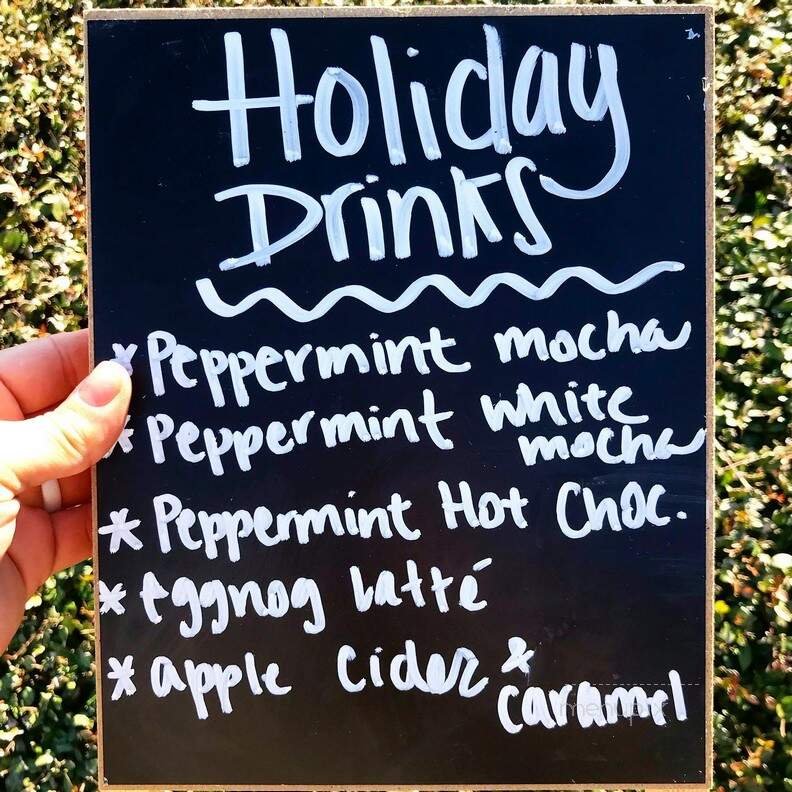 Holiday
Drinks
* Peppermint mocha
* Peppermint white
mocha
* Peppermint Hot Choc.
* eggnog latté
* apple cider &
caramel
menupix